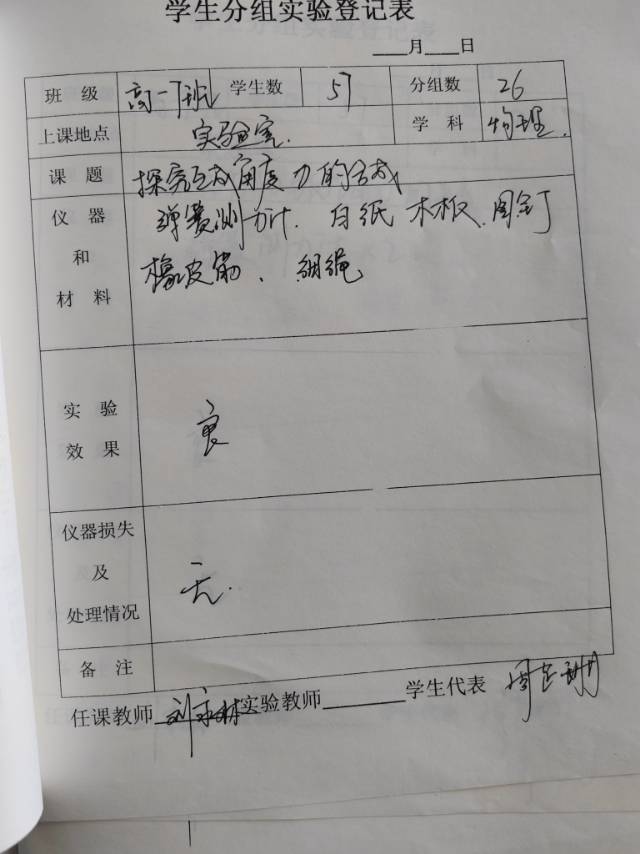 学生分组实验登记表
___月___日
班 级 高一7班 学生数 57 分组数 26
上课地点 实验室. 学 科 物理.
课 题 探究互成角度力的合成
仪 器 弹簧测力计. 白纸 木板. 图钉
和 橡皮筋、细绳
材 料
实 验
效 果 良
仪器损失
及
处理情况 无.
备 注
任课教师 实验教师______ 学生代表